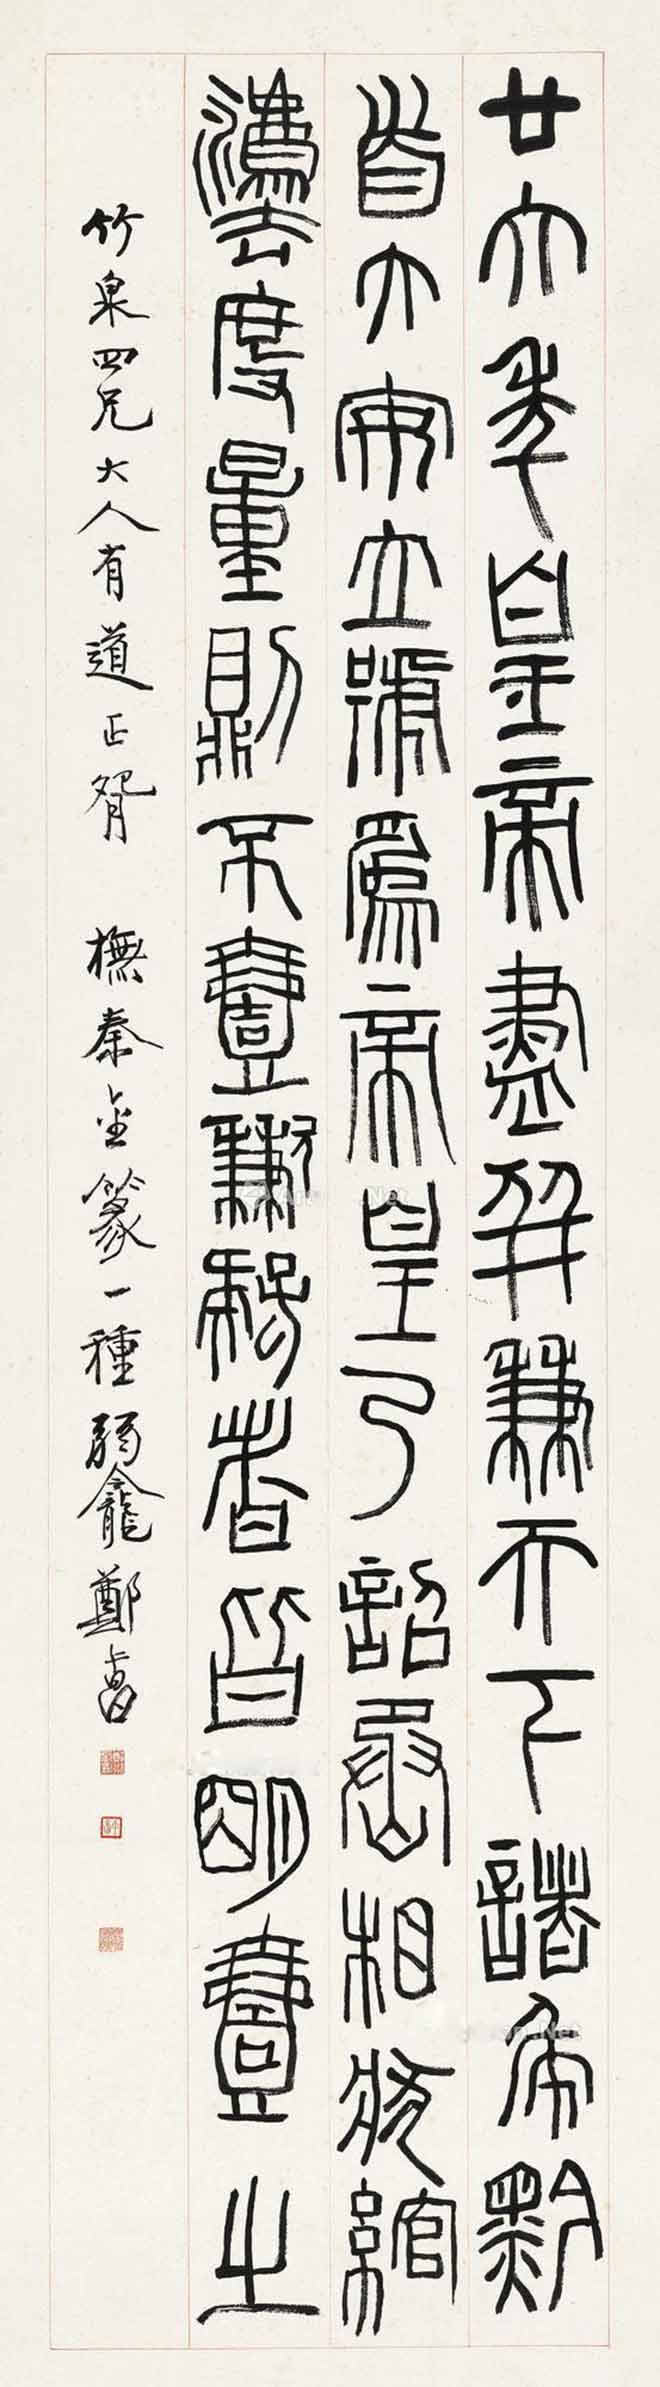 廿六年皇帝盡并兼天下諸侯黔
首大安立號為皇帝乃詔丞相狀綰
灋度量則不壹歉疑者皆明壹之
竹泉四兄大人有道正臂 橅秦金篆一種 弱龕鄭昌